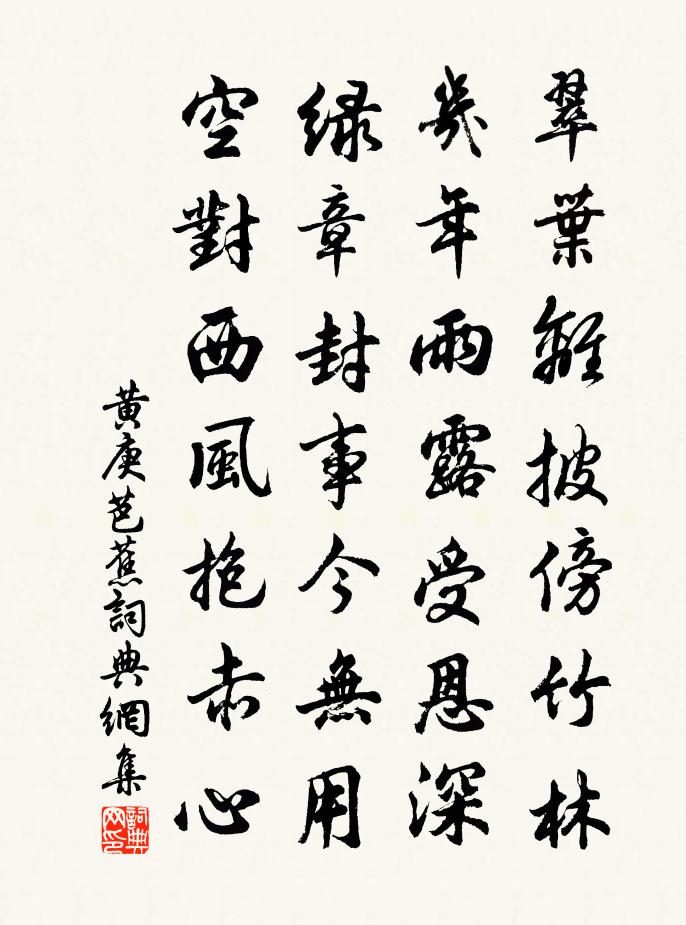 翠葉離披傍竹林
幾年雨露受恩深
緑章封事今無用
空對西風抱赤心
黄庚芭蕉詞典網集
詞典網印